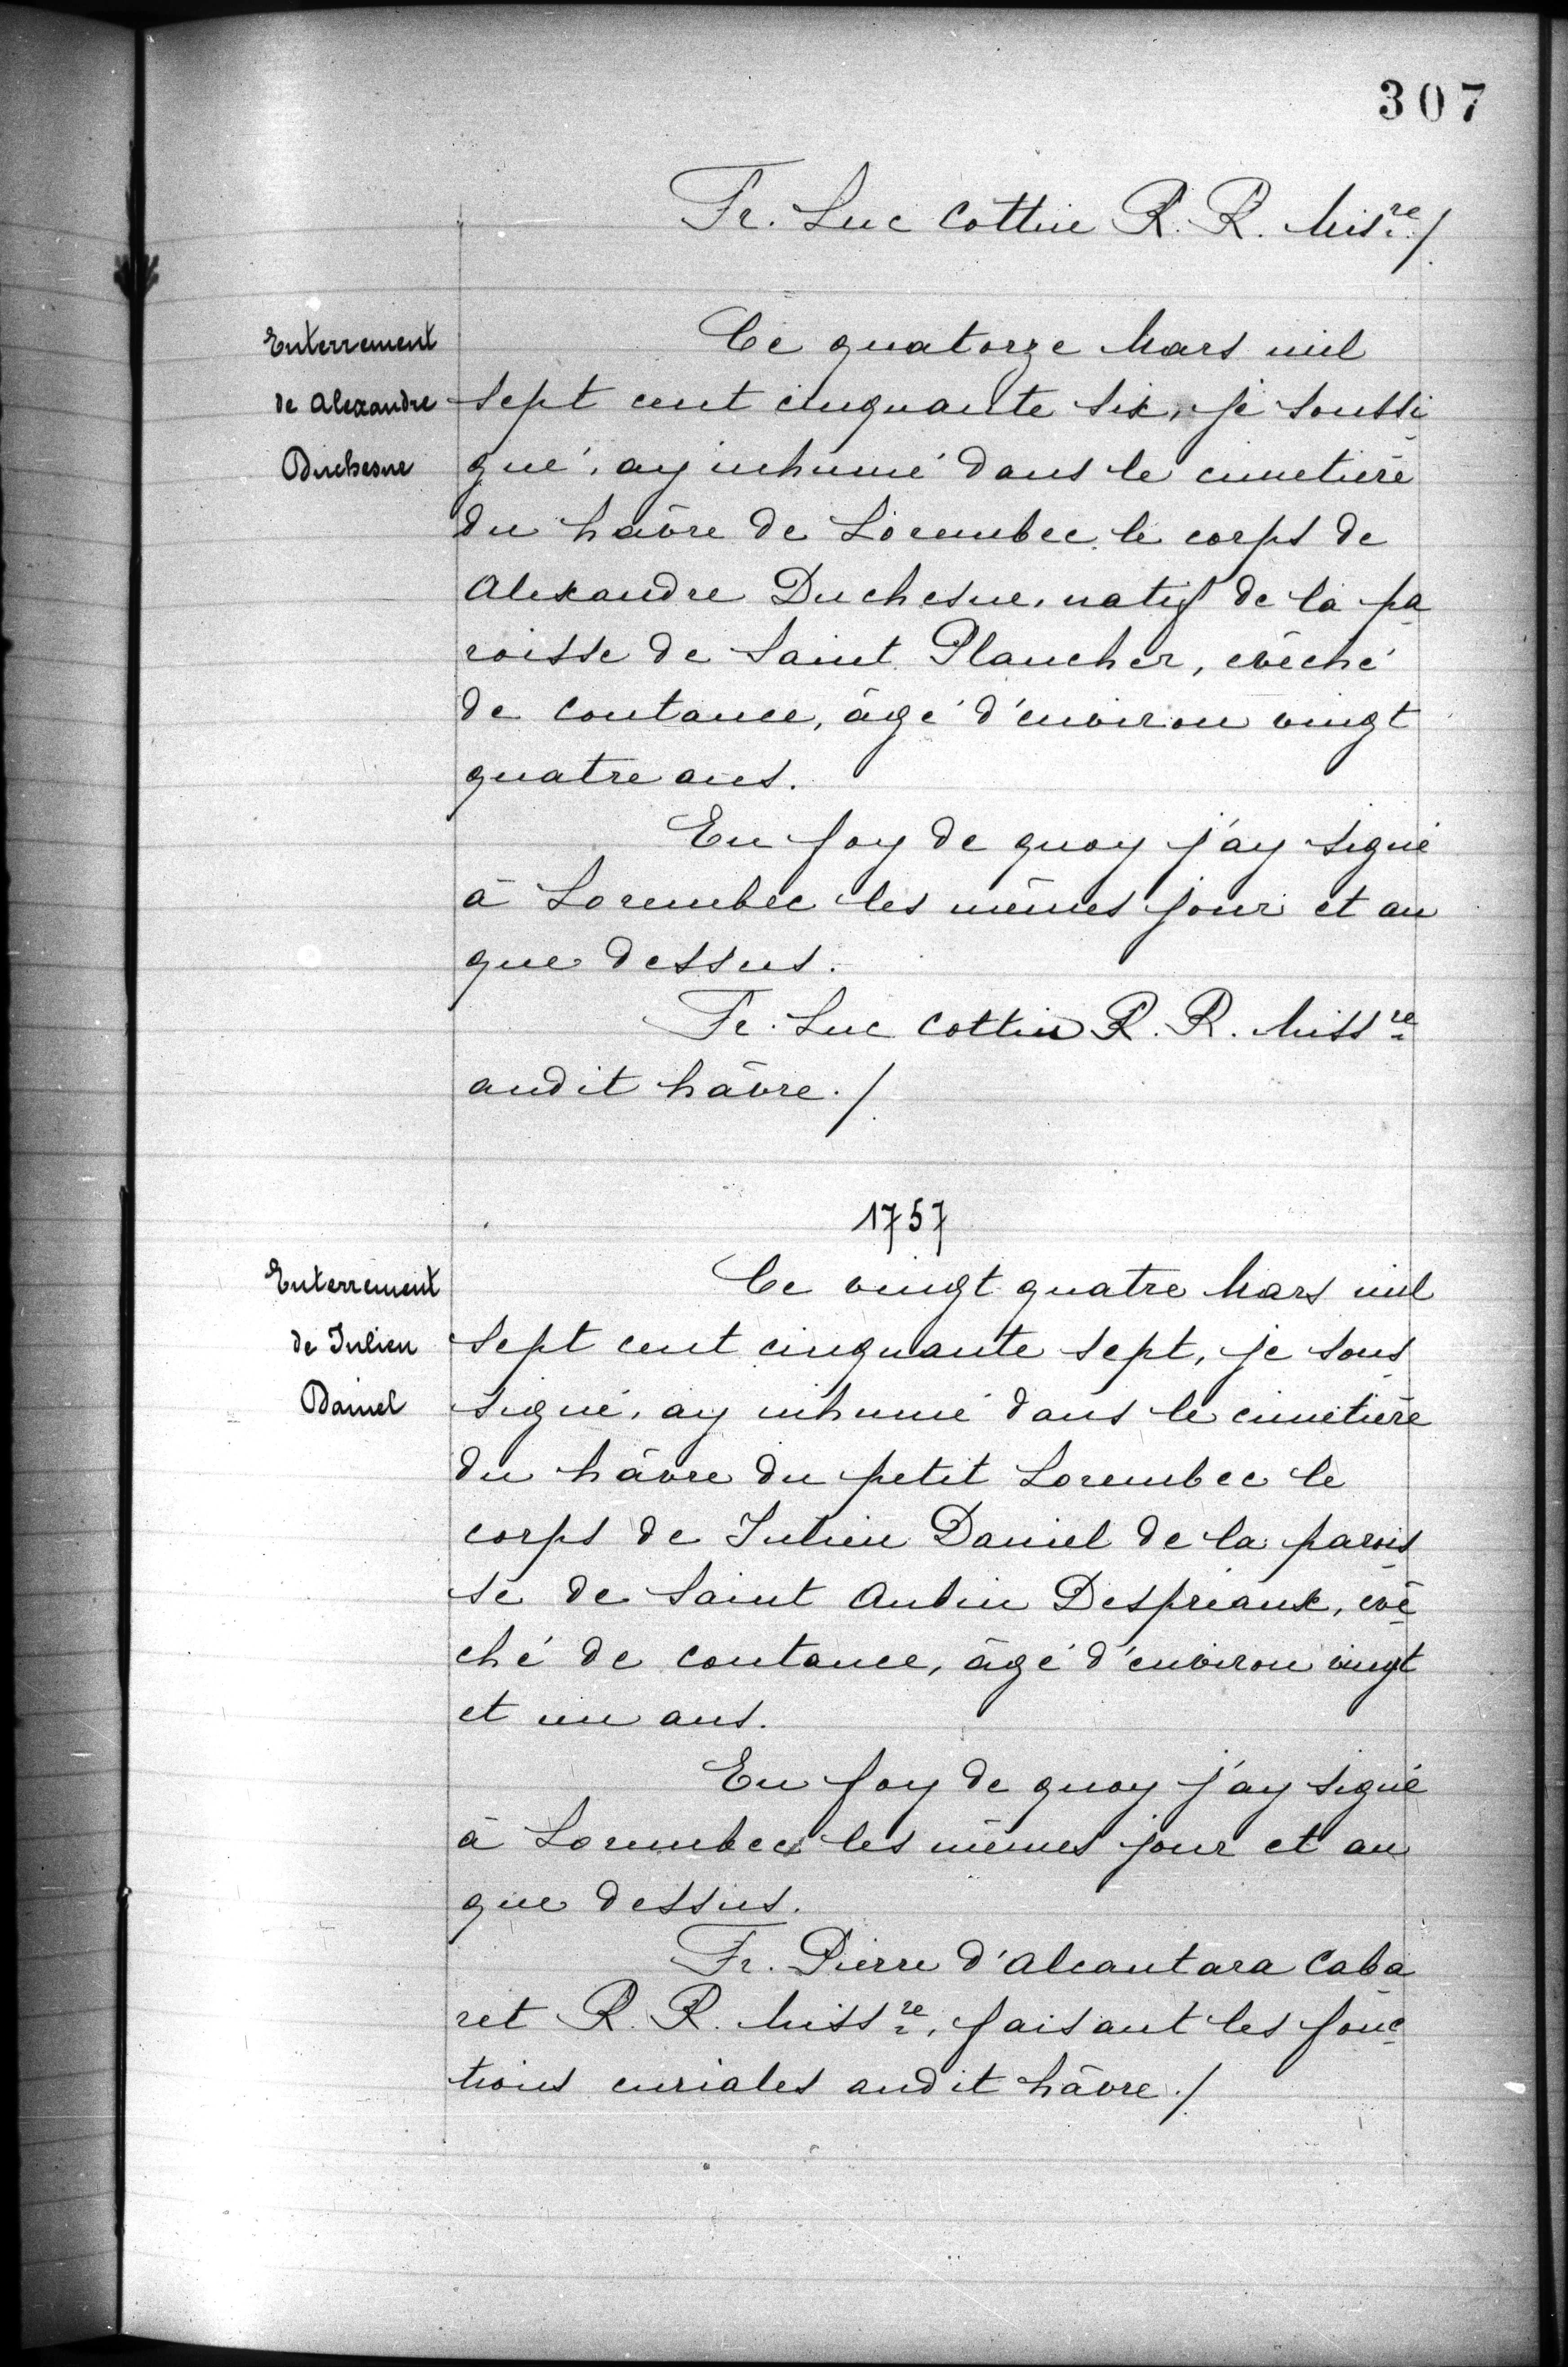 307
Fr. Luc Cottin R. R. Misre./
Enterrement
de Alexandre
Duchesne
Ce quatorze Mars mil
sept cent cinquante six, je soussi
gné, ay inhumé dans le cimetière
du hâvre de Lorembec le corps de
Alexandre Duchesne, natif de la pa
roisse de Saint Plancher, evêché
de Coutance, âgé d'environ vingt
quatre ans.
En foy de quoy j'ay signé
à Lorembec les mêmes jour et an
que dessus.
Fr. Luc Cottin R. R. Missre
audit hâvre./
1757
Enterrement
de Julien
Daniel
Ce vingt quatre Mars mil
sept cent cinquante sept, je sous
signé, ay inhumé dans le cimetière
du hâvre du petit Lorembec le
corps de Julien Daniel de la parois
se de Saint Aubin Despriaux, evê
ché de Coutance, âgé d'environ vingt
et un ans.
En foy de quoy j'ay signé
à Lorembec les mêmes jour et an
que dessus.
Fr. Pierre d'Alcantara Caba
ret R. R. Missre, faisant les fonc
tions curiales audit hâvre./